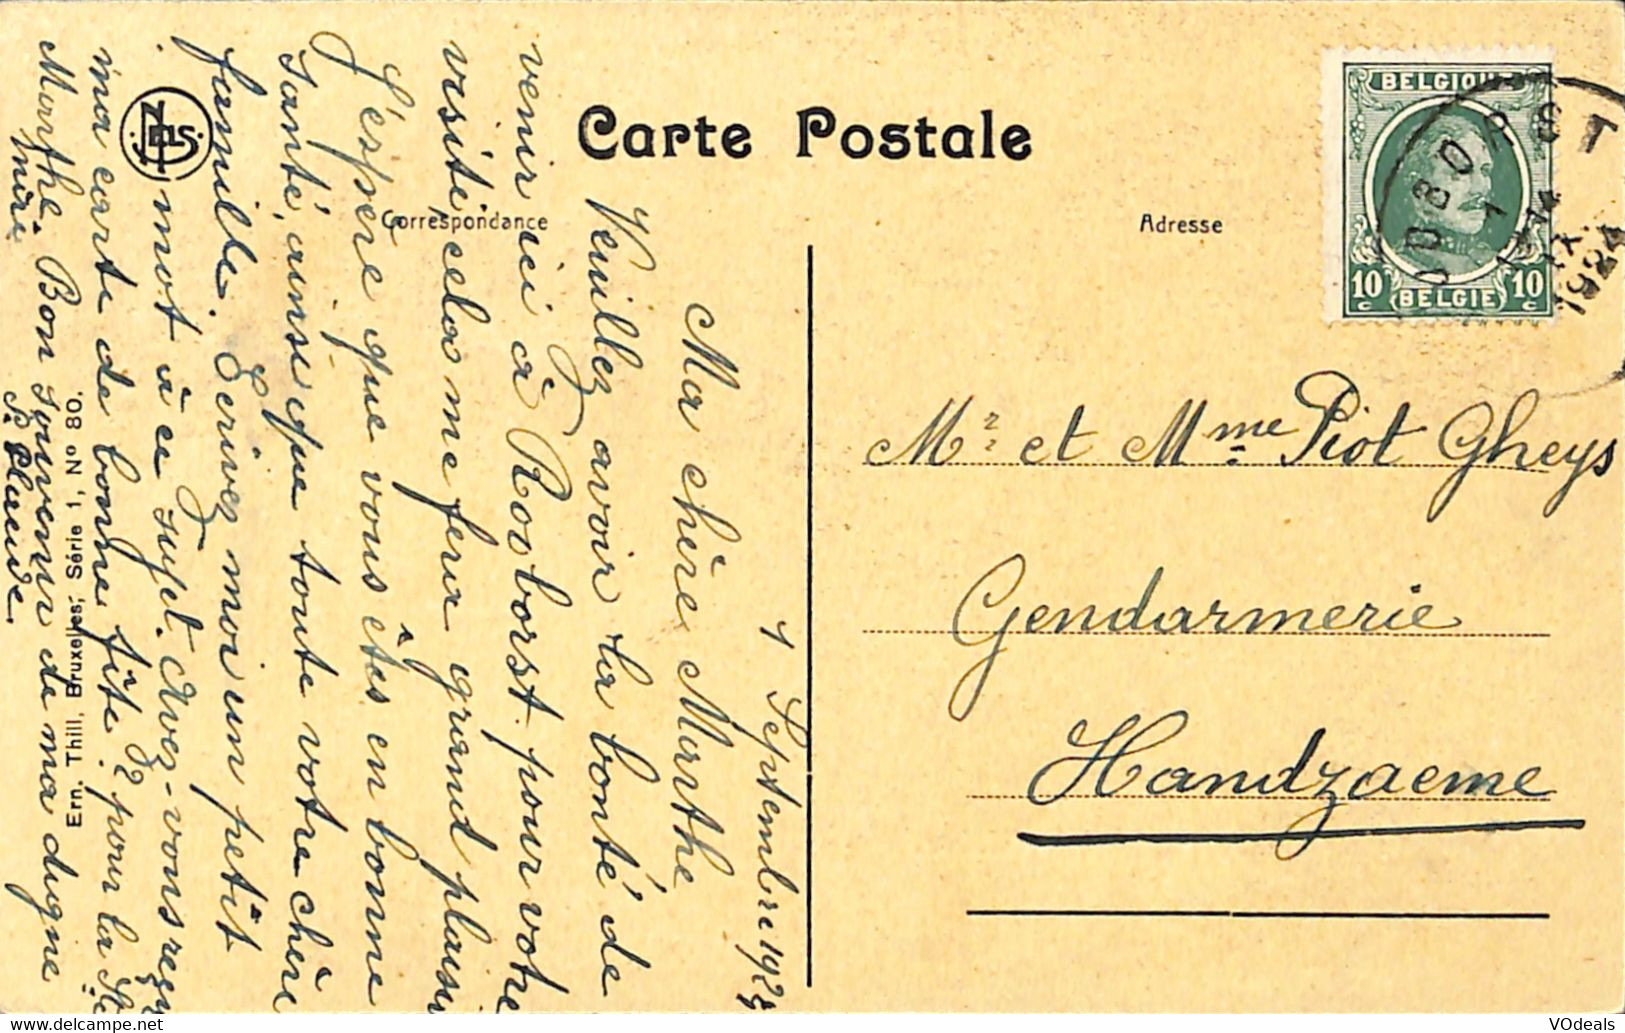 Carte Postale
Correspondance
Adresse
BELGIQUE
10 c
BELGIE
10 c
1924
7 Septembre 1924
Ma chère Marthe
Veuillez avoir la bonté de
venir ici à Rooborst pour votre
visite, cela me fera grand plaisir
J'espère que vous êtes en bonne
santé, ainsi que toute votre chère
famille. Ecrivez moi un petit
mot à ce sujet. Avez-vous reçu
ma carte de bonne fête? pour la St
Marthe. Bon souvenir de ma digne
mère
Ern. Thill, Bruxelles, Série 1, N° 80.
NELS
Mr et Mme Piot Gheys
Gendarmerie
Handzaeme
VOdeals